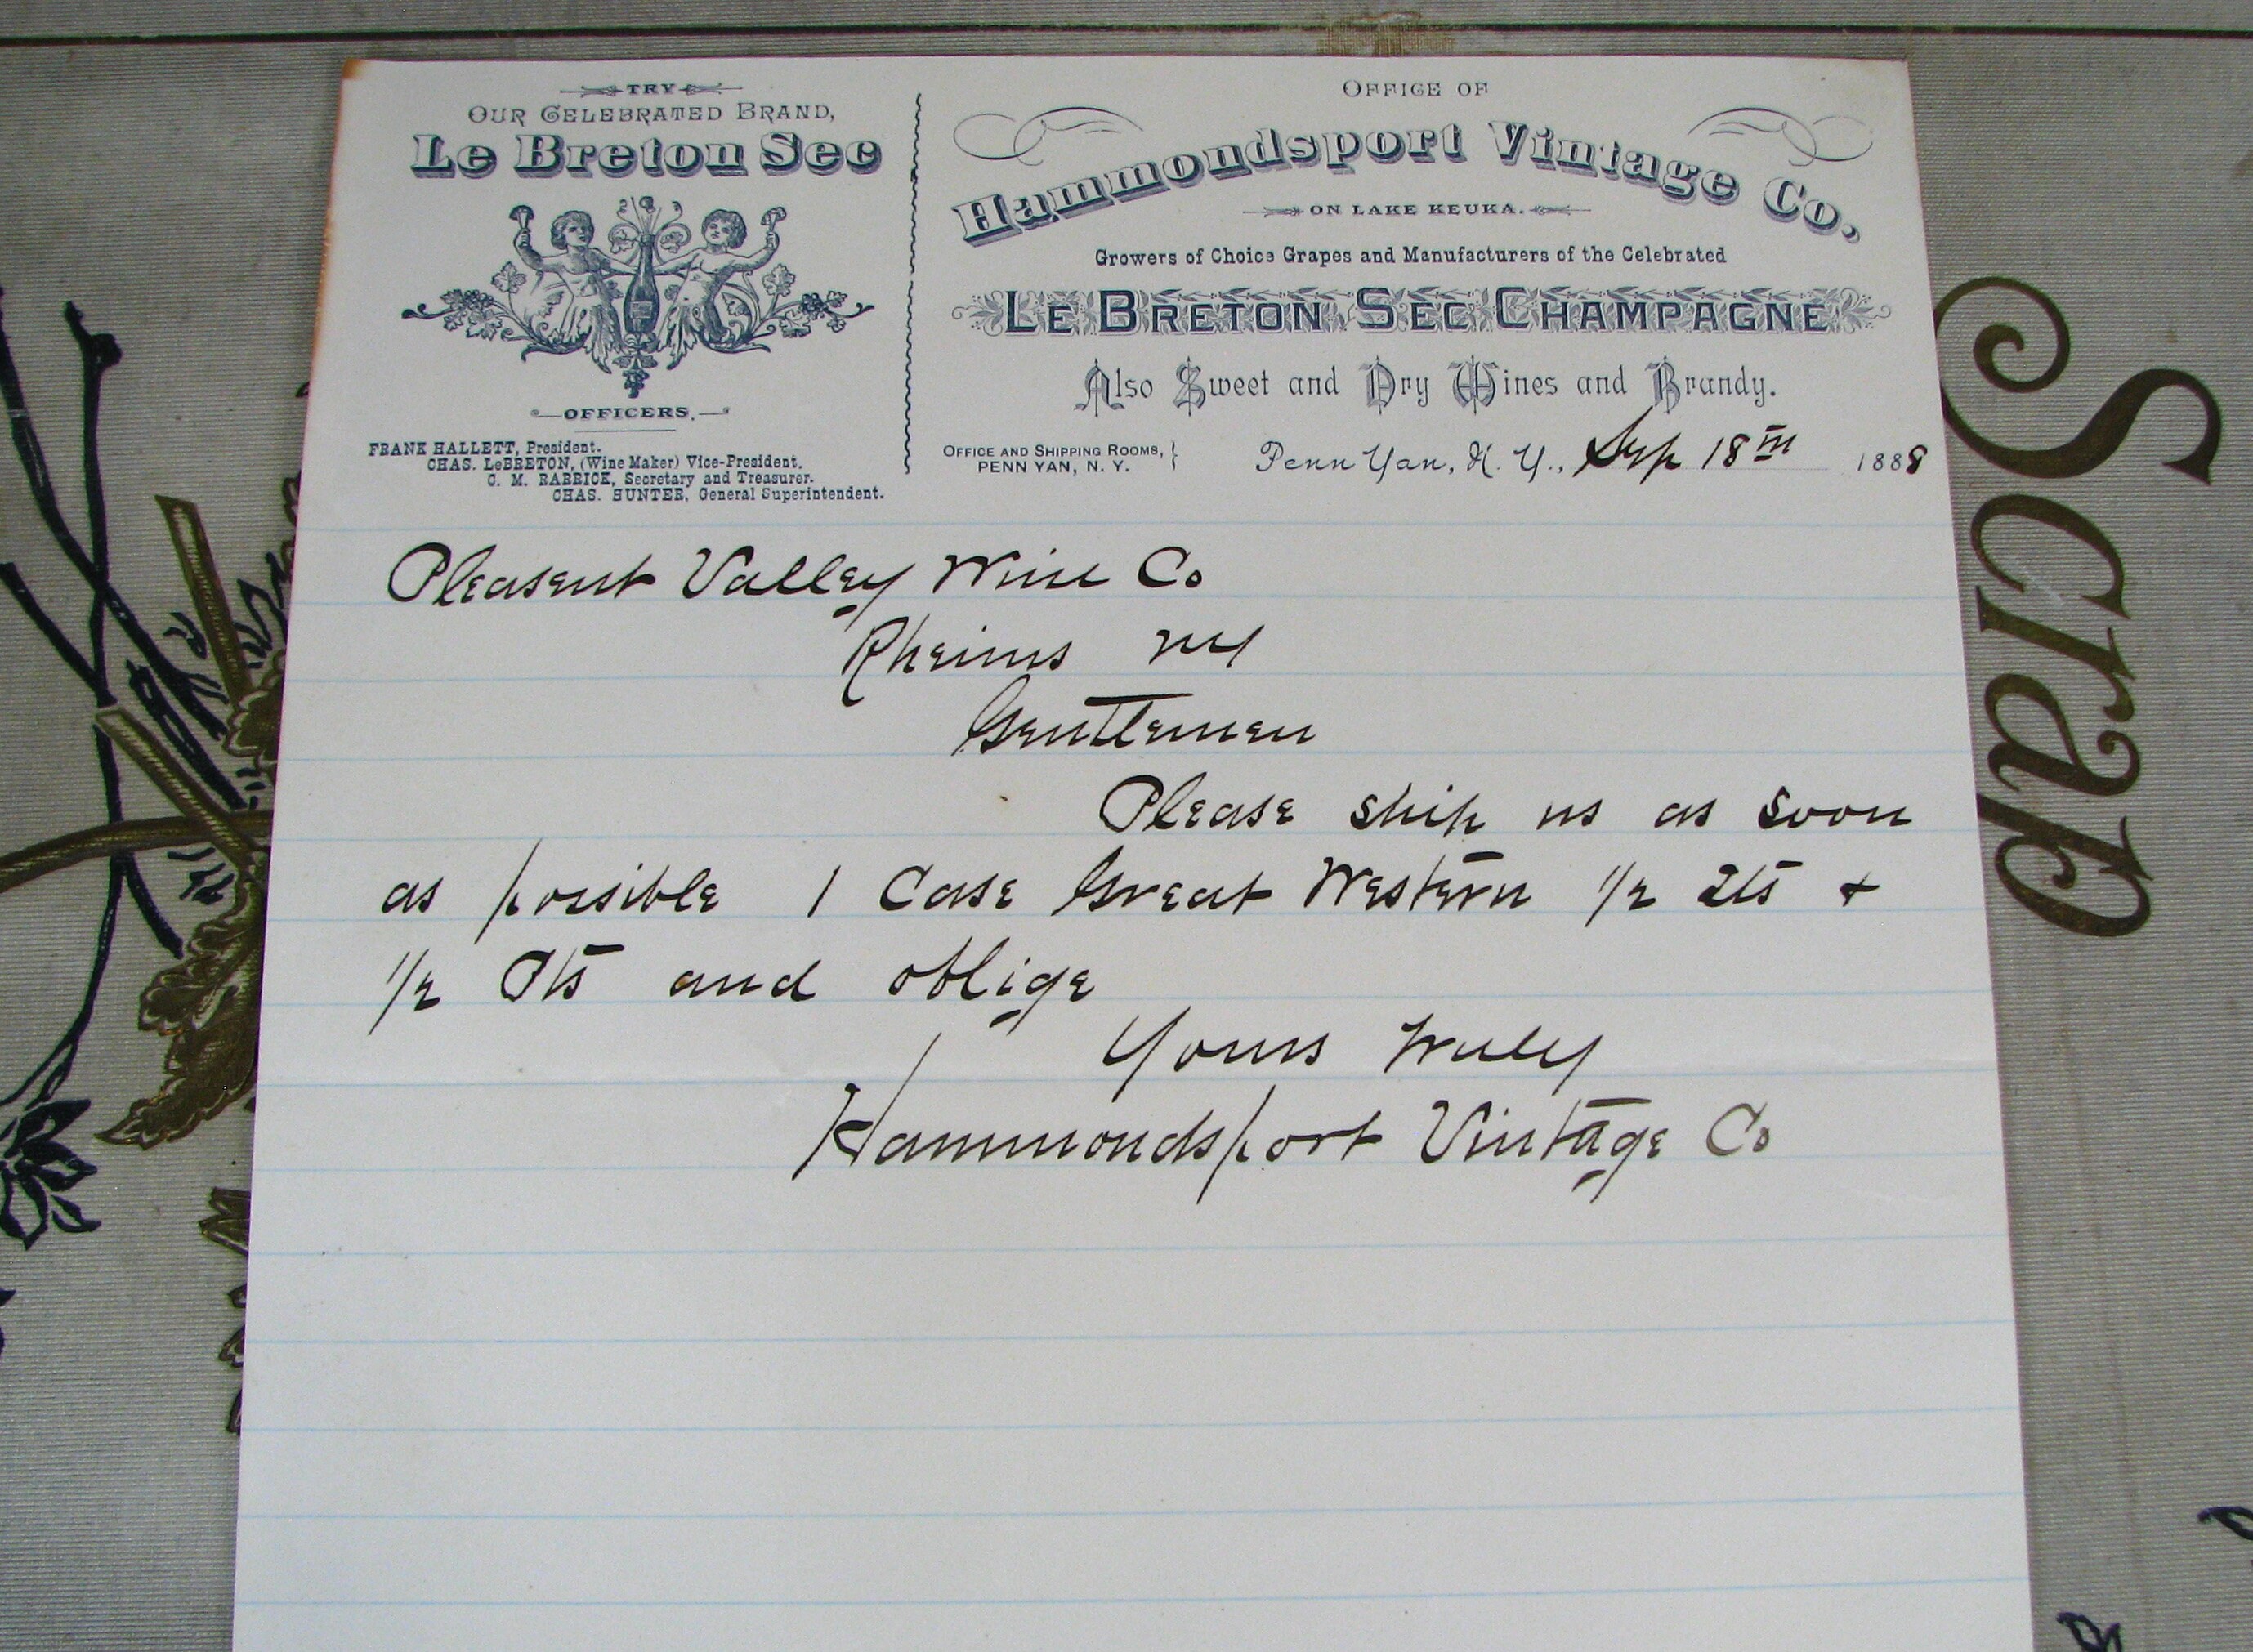 TRY
OUR CELEBRATED BRAND,
Le Breton Sec
OFFICERS.
FRANK HALLETT, President.
CHAS. LeBRETON, (Wine Maker) Vice-President.
C. M. RARRICK, Secretary and Treasurer.
CHAS. HUNTER, General Superintendent.
OFFICE OF
Hammondsport Vintage Co.,
ON LAKE KEUKA.
Growers of Choice Grapes and Manufacturers of the Celebrated
LE BRETON SEC CHAMPAGNE
Also Sweet and Dry Wines and Brandy.
OFFICE AND SHIPPING ROOMS, }
PENN YAN, N. Y.
Penn Yan, N. Y., Sep 18th 1888
Pleasent Valley Wine Co
Rheims NY
Gentlemen
Please ship us as soon
as possible 1 Case Great Western 1/2 Qts +
1/2 Pts and oblige
Yours Truly
Hammondsport Vintage Co
Scrap